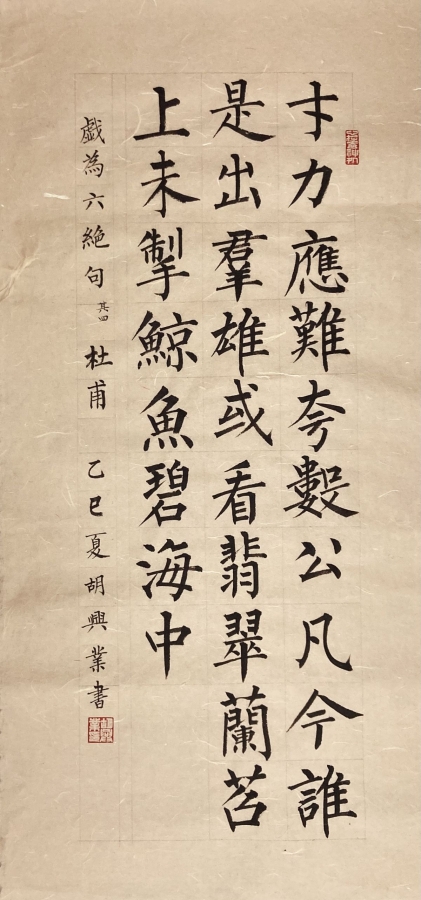 才力應難夸數公凡今誰
是出羣雄或看翡翠蘭苕
上未掣鯨魚碧海中
戯為六絶句 其四 杜甫 乙巳夏胡興業書